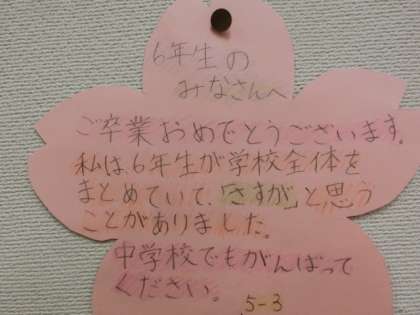 6年生の
みなさんへ
ご卒業おめでとうございます。
私は、6年生が学校全体を
まとめていて、「さすが」と思う
ことがありました。
中学校でもがんばって
ください。
5-3